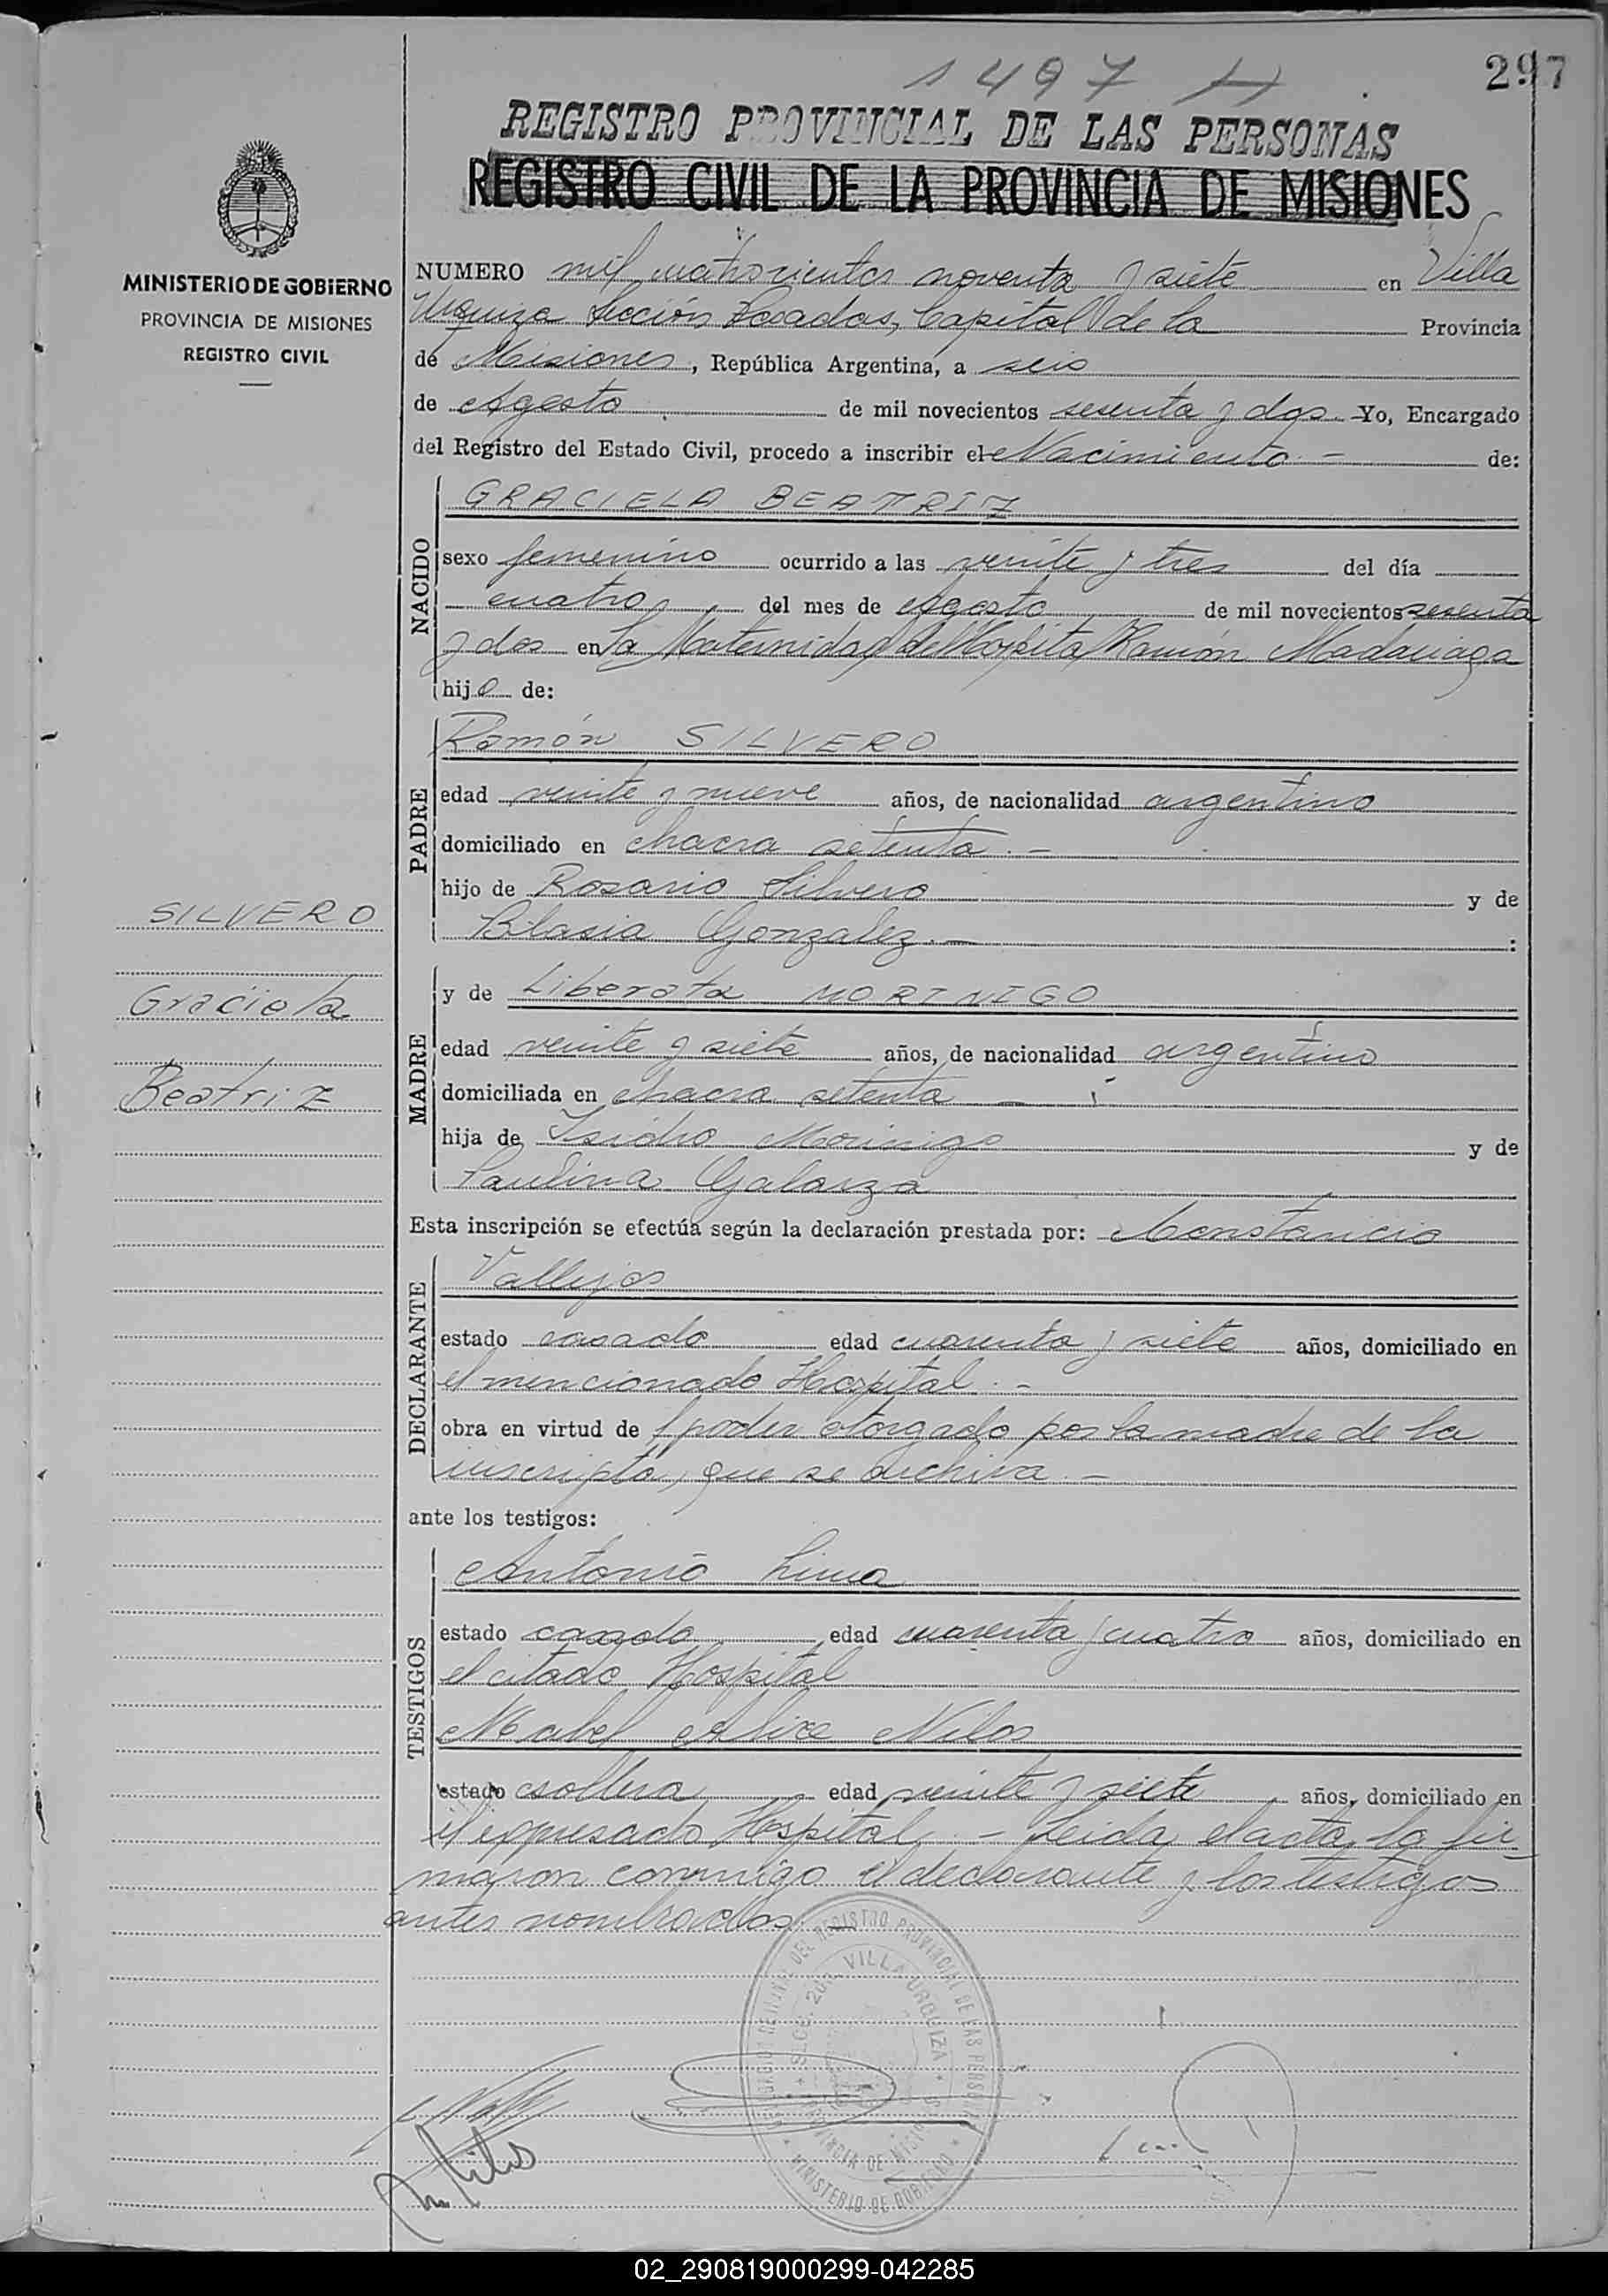 297
1497 H
REGISTRO PROVINCIAL DE LAS PERSONAS
REGISTRO CIVIL DE LA PROVINCIA DE MISIONES
MINISTERIO DE GOBIERNO
PROVINCIA DE MISIONES
REGISTRO CIVIL
NUMERO mil cuatrocientos noventa y siete en Villa
Urquiza Sección Posadas, Capital de la Provincia
de Misiones, República Argentina, a seis
de Agosto de mil novecientos sesenta y dos Yo, Encargado
del Registro del Estado Civil, procedo a inscribir el Nacimiento.- de:
NACIDO
GRACIELA BEATRIZ
sexo femenino ocurrido a las veinte y tres del día
cuatro del mes de Agosto de mil novecientos sesenta
y dos en la Maternidad del Hospital Ramón Madariaga
hija de:
PADRE
Ramón SILVERO
edad veinte y nueve años, de nacionalidad argentino
domiciliado en chacra setenta.-
hijo de Rosario Silvero y de
Blasia Gonzalez.-
SILVERO
Graciela
Beatriz
MADRE
y de Liberata MORINIGO
edad veinte y siete años, de nacionalidad argentina
domiciliada en chacra setenta -
hija de Isidro Morinigo y de
Paulina Galarza
Esta inscripción se efectúa según la declaración prestada por: Constancio
DECLARANTE
Vallejos
estado casado edad cuarenta y siete años, domiciliado en
el mencionado Hospital.-
obra en virtud de poder otorgado por la madre de la
inscripta, que se archiva.-
ante los testigos:
TESTIGOS
Antonio Lima
estado casado edad cuarenta y cuatro años, domiciliado en
el citado Hospital
Mabel Alice Nilos
estado soltera edad veinte y siete años, domiciliado en
el expresado Hospital.- Leida el acta, la fir-
maron conmigo el declarante y los testigos
antes nombrados.-
DEL REGISTRO PROVINCIAL DE LAS PERSONAS
VILLA URQUIZA
PROVINCIA DE MISIONES
MINISTERIO DE GOBIERNO
02_290819000299-042285